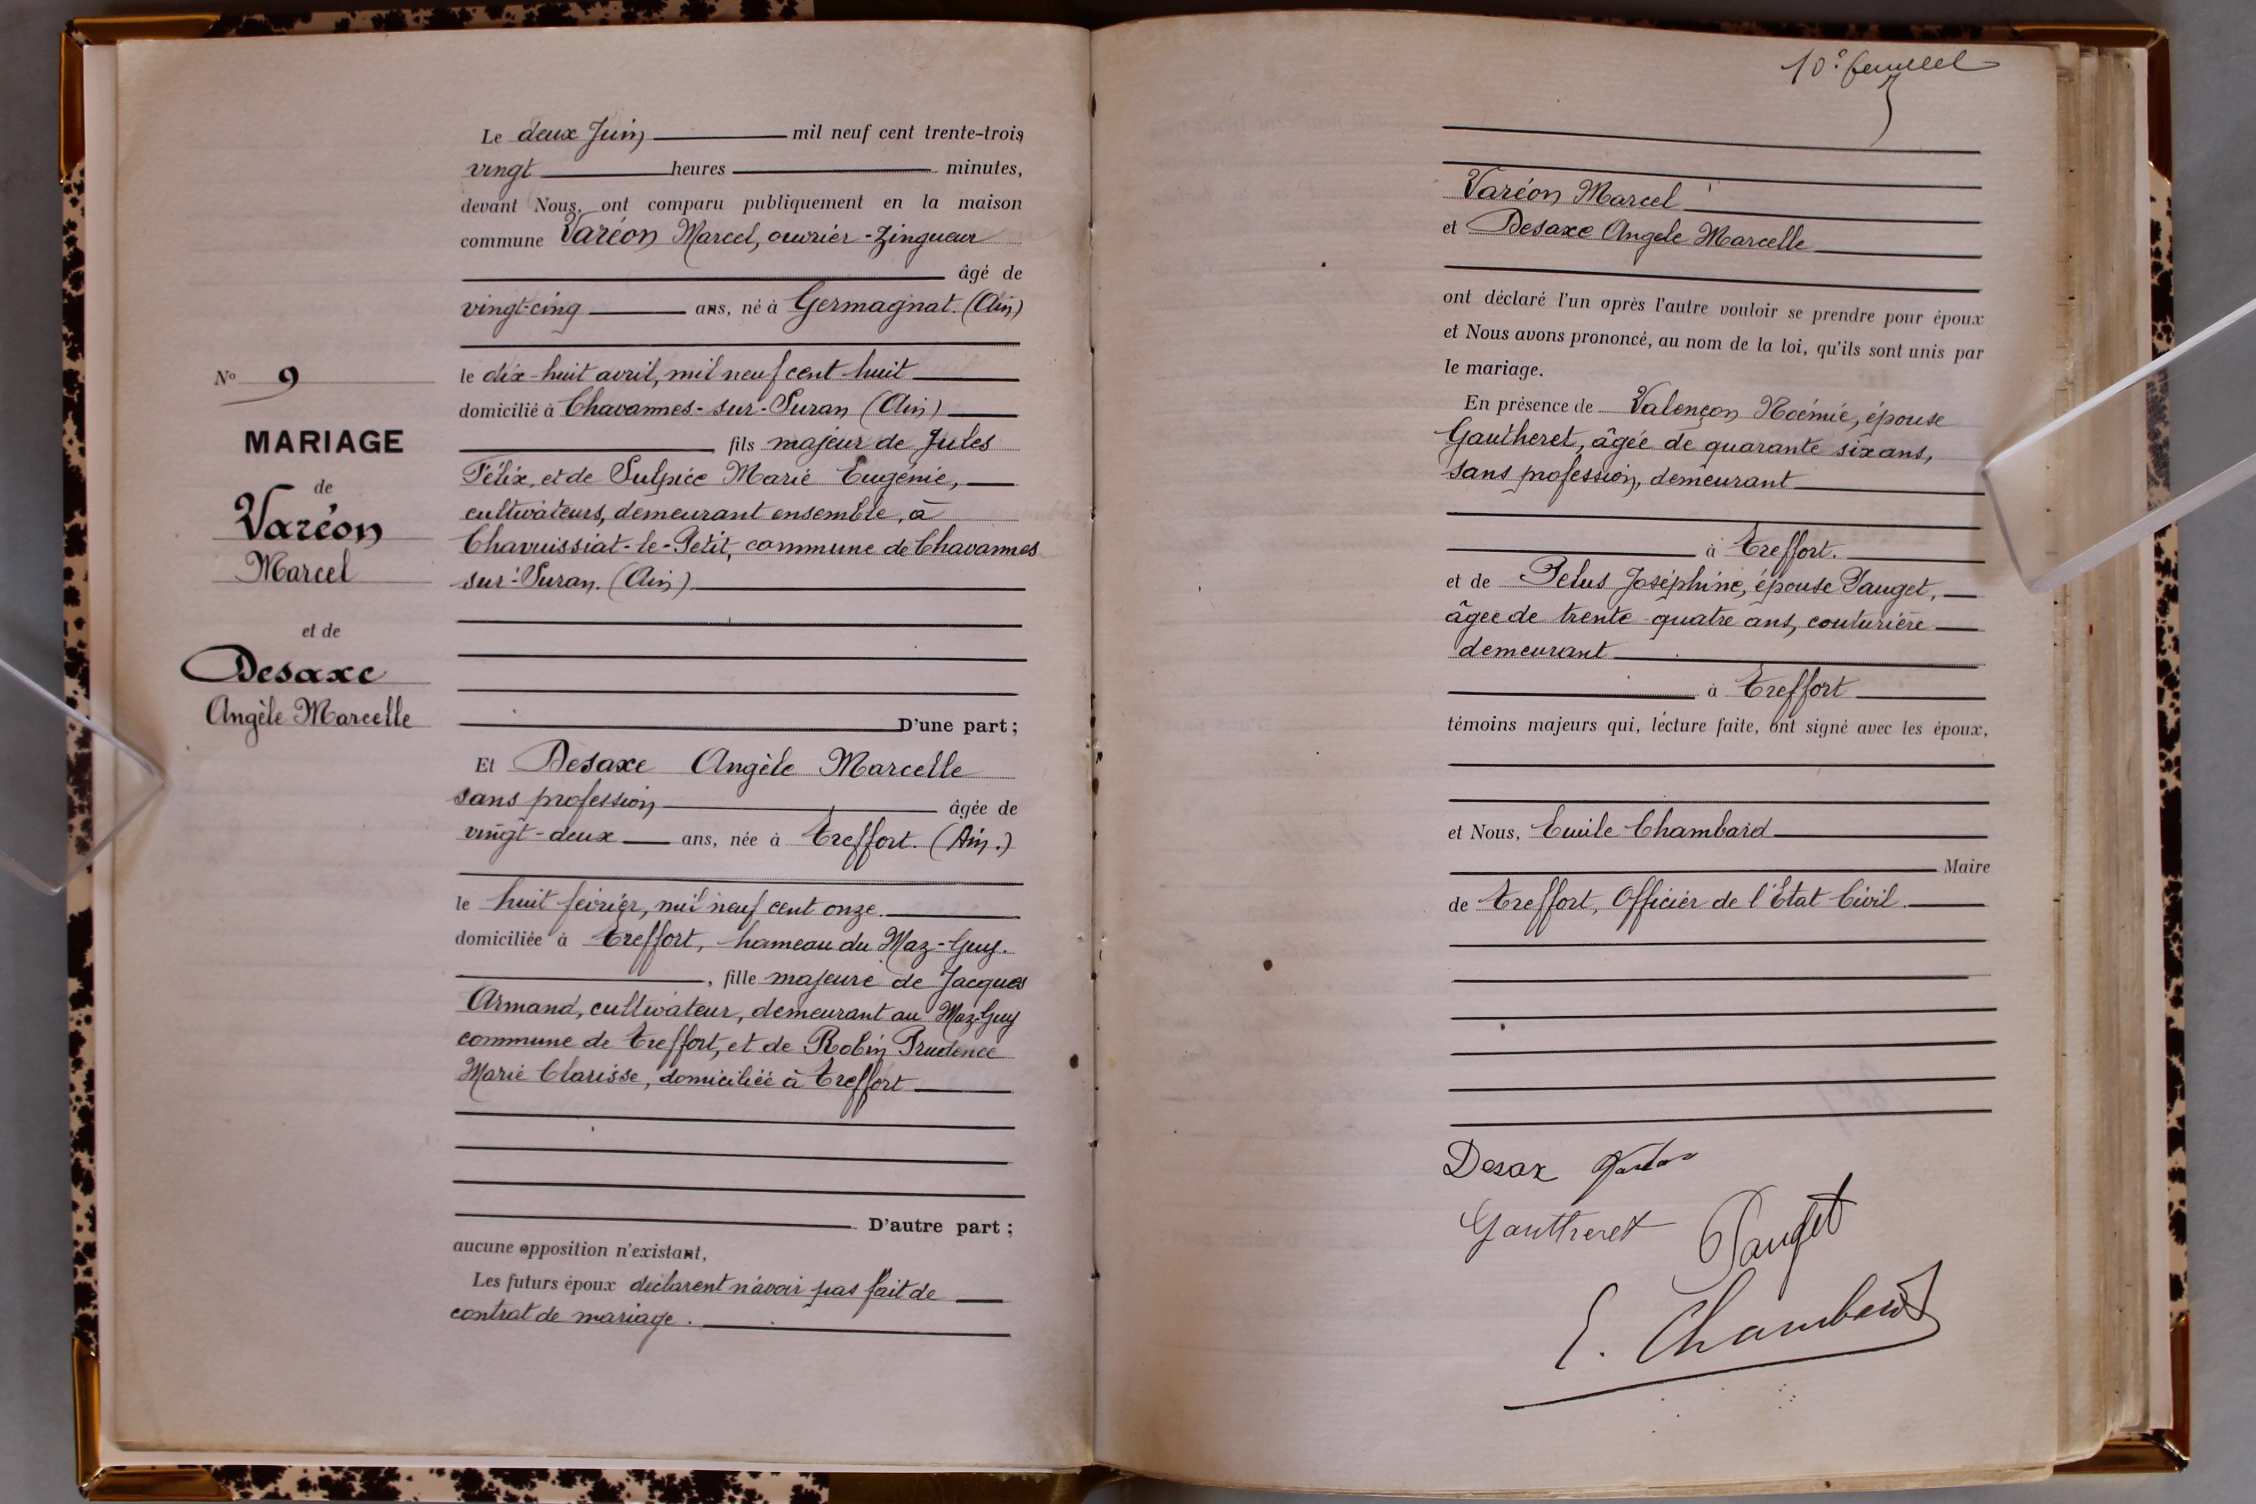 N° 9
MARIAGE
de
Varéon
Marcel
et de
Desaxe
Angèle Marcelle
Le deux Juin mil neuf cent trente-trois
vingt heures minutes,
devant Nous, ont comparu publiquement en la maison
commune Varéon Marcel, ouvrier-zingueur
âgé de
vingt-cinq ans, né à Germagnat. (Ain)
le dix-huit avril, mil neuf cent huit
domicilié à Chavannes-sur-Suran (Ain)
fils majeur de Jules
Félix, et de Sulpice Marie Eugénie,
cultivateurs, demeurant ensemble, à
Chavuissiat-le-Petit, commune de Chavannes
sur-Suran. (Ain)
D'une part ;
Et Desaxe Angèle Marcelle
sans profession âgée de
vingt-deux ans, née à Treffort. (Ain.)
le huit février, mil neuf cent onze.
domiciliée à Treffort, hameau du Maz-Guy.
, fille majeure de Jacques
Armand, cultivateur, demeurant au Maz-Guy
commune de Treffort, et de Robin Prudence
Marie Clarisse, domiciliée à Treffort
D'autre part ;
aucune opposition n'existant,
Les futurs époux déclarent n'avoir pas fait de
contrat de mariage.
10e feuillet
Varéon Marcel
et Desaxe Angèle Marcelle
ont déclaré l'un après l'autre vouloir se prendre pour époux
et Nous avons prononcé, au nom de la loi, qu'ils sont unis par
le mariage.
En présence de Valençon Noémie, épouse
Gautheret, âgée de quarante six ans,
sans profession, demeurant
à Treffort.
et de Pelus Joséphine, épouse Pauget,
âgée de trente-quatre ans, couturière
demeurant
à Treffort
témoins majeurs qui, lecture faite, ont signé avec les époux,
et Nous, Emile Chambard
Maire
de Treffort, Officier de l'Etat Civil.
Desax
Gautheret Pauget
E. Chambard